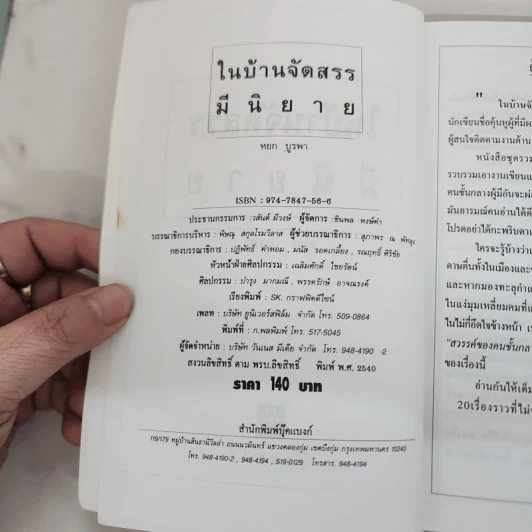 ในบ้านจัดสรร
มีนิยาย
หยก บูรพา
ISBN : 974-7847-56-6
ประธานกรรมการ : วสันต์ มีวงษ์ ผู้จัดการ : ชินพล หงษ์ดำ
บรรณาธิการบริหาร : พิษณุ สกุลโรมวิลาส ผู้ช่วยบรรณาธิการ : สุภาพร ณ พัทลุง
กองบรรณาธิการ : ปฏิพัทธิ์ คำหอม , มนัส รอดเกลี้ยง , รณฤทธิ์ ศิริชัย
หัวหน้าฝ่ายศิลปกรรม : เฉลิมศักดิ์ ไชยรัตน์
ศิลปกรรม : ปารุง มากมณี , พรรครักษ์ อาจณรงค์
เรียงพิมพ์ : SK. กราฟฟิคดีไซน์
เพลท : บริษัท ยูนิเวอร์สฟิล์ม จำกัด โทร. 509-0864
พิมพ์ที่ : ก.พลพิมพ์ โทร. 517-5045
ผู้จัดจำหน่าย : บริษัท วันเนส มีเดีย จำกัด โทร. 948-4190 -2
สงวนลิขสิทธิ์ ตาม พรบ.ลิขสิทธิ์ พิมพ์ พ.ศ. 2540
ราคา 140 บาท
สำนักพิมพ์บุ๊คแบงก์
119/179 หมู่บ้านสินธานีวิลล่า ถนนนวมินทร์ แขวงคลองกุ่ม เขตบึงกุ่ม กรุงเทพมหานคร 10240
โทร. 948-4190-2 , 948-4194 , 519-0129 โทรสาร. 948-4194
"
ในบ้านจั
นักเขียนชื่อคุ้นหูผู้ที่มี
ผู้สนใจติดตามงานด้าน
หนังสือชุดรวม
รวบรวมเอางานเขียน
คนชั้นกลางผู้มีอันจะ
มันอารมณ์คนอ่านได้
โปรดอ่าได้กะพริบตา
ใครจะรู้บ้างว่า
ดาษดื่นทั้งในเมืองและ
และหากมองทะลุกำแ
ในแง่มุมเหลี่ยมคมที่แ
ในไม่กี่อึดใจข้างหน้า
"สวรรค์ของคนชั้นกล
ของเรื่องนี้
อ่านกันให้เต็ม
20เรื่องราวที่ไม่